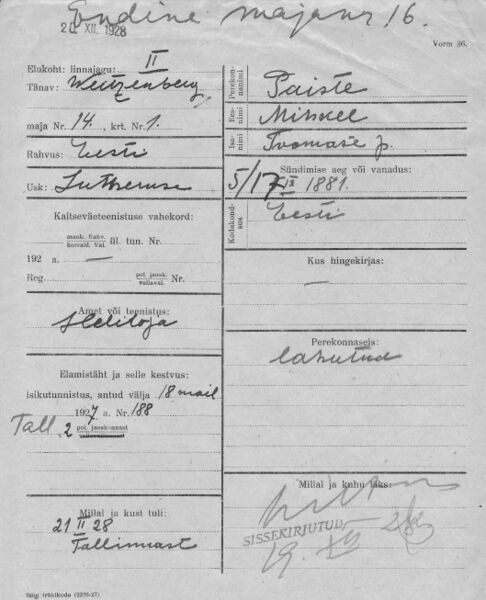 Endine majanr 16.
20 XII. 1928
Vorm 36.
Elukoht: linnajagu: II
Tänav: Weitzenberg,
maja Nr. 14., krt. Nr. 1.
Rahvus: Eesti
Usk: Lutheruse
Kaitseväeteenistuse vahekord:
mauk. Rahv. korrald. Val. ül. tun. Nr.
192 a. —
Reg. pol. jaosk. vallaval. Nr.
Amet või teenistus:
Helilooja
Elamistäht ja selle kestvus:
isikutunnistus, antud välja 18 mail
1927 a. Nr. 188
Tall. 2 pol. jaoskonnast
vallavalitsusest
Millal ja kust tuli:
21 II 28
Tallinnast
Riigi trükikoda
Perekonnanimi Päiste
Eesnimi Mihkel
Isanimi Toomase p.
Sündimise aeg või vanadus:
5/17 IX 1881.
Kodakondsus Eesti
Kus hingekirjas:
—
Perekonnaseis:
lahutud
Millal ja kuhu läks:
SISSEKIRJUTUD
19. XII 28